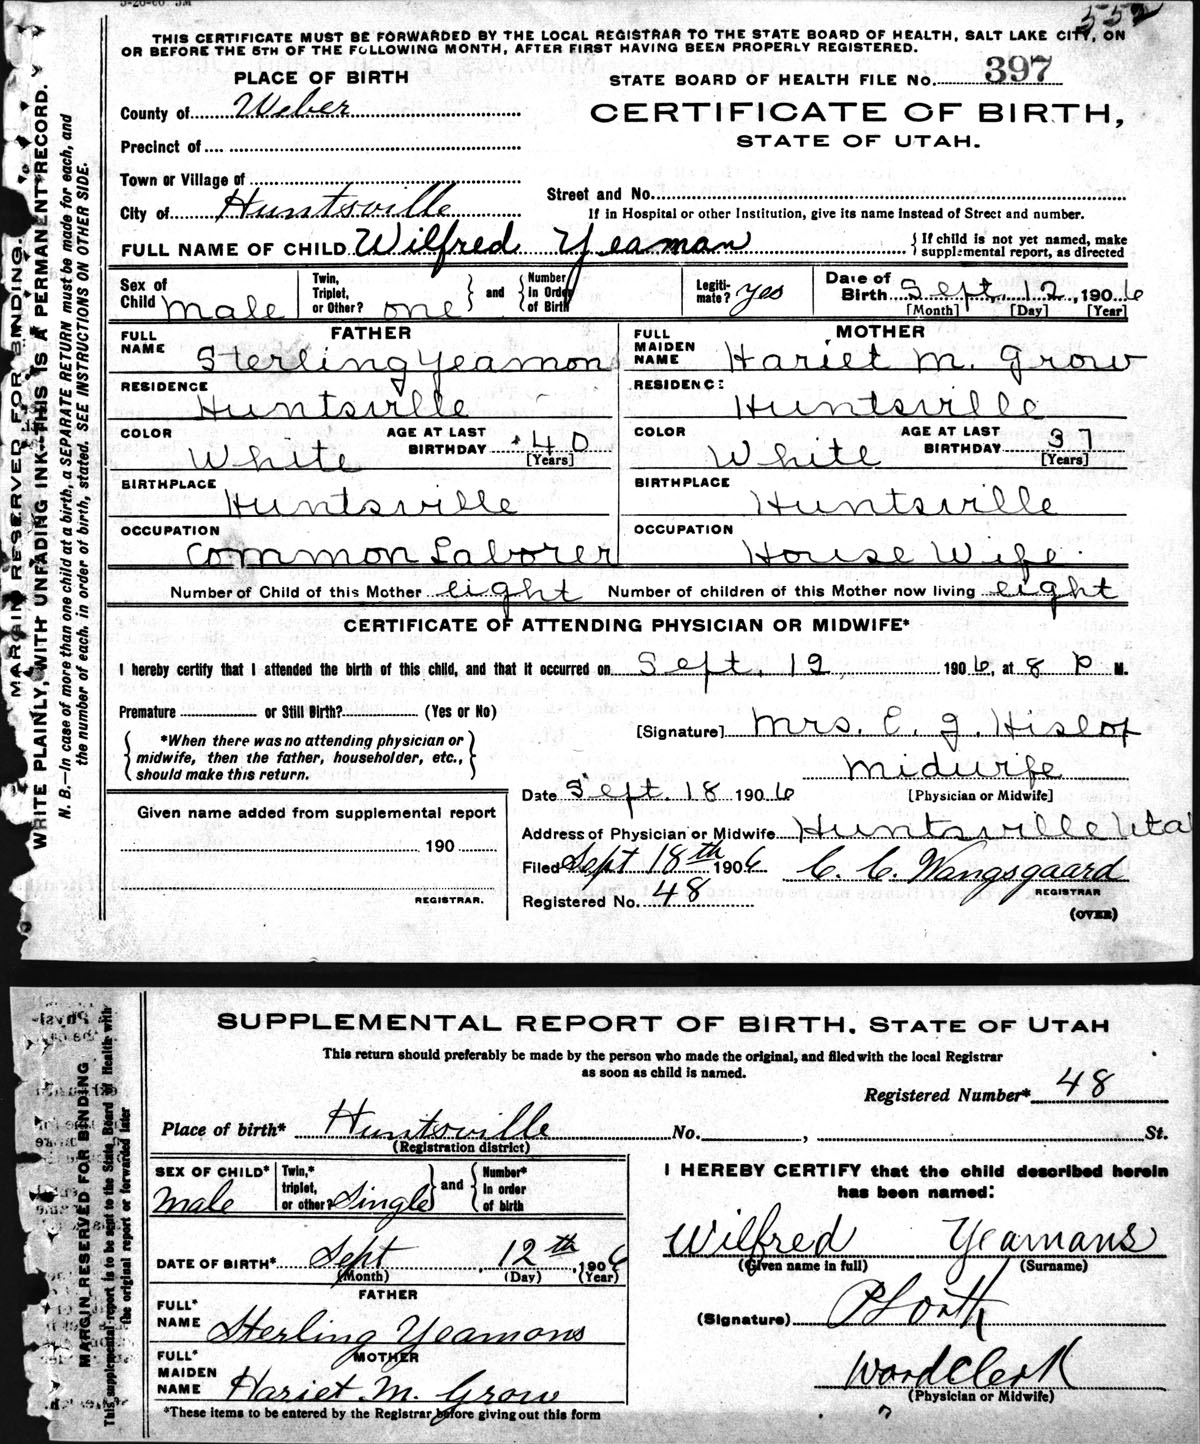 5-26-06 3M
552
THIS CERTIFICATE MUST BE FORWARDED BY THE LOCAL REGISTRAR TO THE STATE BOARD OF HEALTH, SALT LAKE CITY, ON
OR BEFORE THE 5TH OF THE FOLLOWING MONTH, AFTER FIRST HAVING BEEN PROPERLY REGISTERED.
MARGIN RESERVED FOR BINDING.
WRITE PLAINLY, WITH UNFADING INK—THIS IS A PERMANENT RECORD.
N. B.—In case of more than one child at a birth, a SEPARATE RETURN must be made for each, and
the number of each, in order of birth, stated. SEE INSTRUCTIONS ON OTHER SIDE.
PLACE OF BIRTH
STATE BOARD OF HEALTH FILE NO. 397
County of Weber
CERTIFICATE OF BIRTH,
STATE OF UTAH.
Precinct of
Town or Village of
Street and No.
City of Huntsville
If in Hospital or other Institution, give its name instead of Street and number.
FULL NAME OF CHILD Wilfred Yeaman { If child is not yet named, make
supplemental report, as directed
Sex of Child Male Twin, Triplet, or Other? one } and { Number in Order of Birth Legiti- mate? yes Date of Birth Sept. 12, 1906
[Month] [Day] [Year]
FATHER MOTHER
FULL NAME Sterling Yeamon FULL MAIDEN NAME Hariet M. Grow
RESIDENCE Huntsville RESIDENCE Huntsville
COLOR White AGE AT LAST BIRTHDAY 40 [Years] COLOR White AGE AT LAST BIRTHDAY 37 [Years]
BIRTHPLACE Huntsville BIRTHPLACE Huntsville
OCCUPATION Common Laborer OCCUPATION House Wife
Number of Child of this Mother eight Number of children of this Mother now living eight
CERTIFICATE OF ATTENDING PHYSICIAN OR MIDWIFE*
I hereby certify that I attended the birth of this child, and that it occurred on Sept. 12, 1906, at 8 P M.
Premature or Still Birth? (Yes or No)
{ *When there was no attending physician or
midwife, then the father, householder, etc.,
should make this return. }
[Signature] Mrs. C. J. Hislop
Midwife
[Physician or Midwife]
Date Sept. 18 1906
Given name added from supplemental report
190
REGISTRAR.
Address of Physician or Midwife Huntsville Uta
Filed Sept 18th 1906 C. C. Wangsgaard
REGISTRAR
Registered No. 48
(OVER)
SUPPLEMENTAL REPORT OF BIRTH, STATE OF UTAH
This return should preferably be made by the person who made the original, and filed with the local Registrar
as soon as child is named.
MARGIN RESERVED FOR BINDING
This supplemental report is to be sent to the State Board of Health with
the original report or forwarded later
Registered Number* 48
Place of birth* Huntsville No. , St.
(Registration district)
SEX OF CHILD* Male Twin,* triplet, or other? Single } and { Number* in order of birth
I HEREBY CERTIFY that the child described herein
has been named:
Wilfred Yeamans
(Given name in full) (Surname)
DATE OF BIRTH* Sept 12th, 1906
(Month) (Day) (Year)
FATHER
FULL* NAME Sterling Yeamons
(Signature)
MOTHER
FULL* MAIDEN NAME Hariet M. Grow
Ward Clerk
(Physician or Midwife)
*These items to be entered by the Registrar before giving out this form